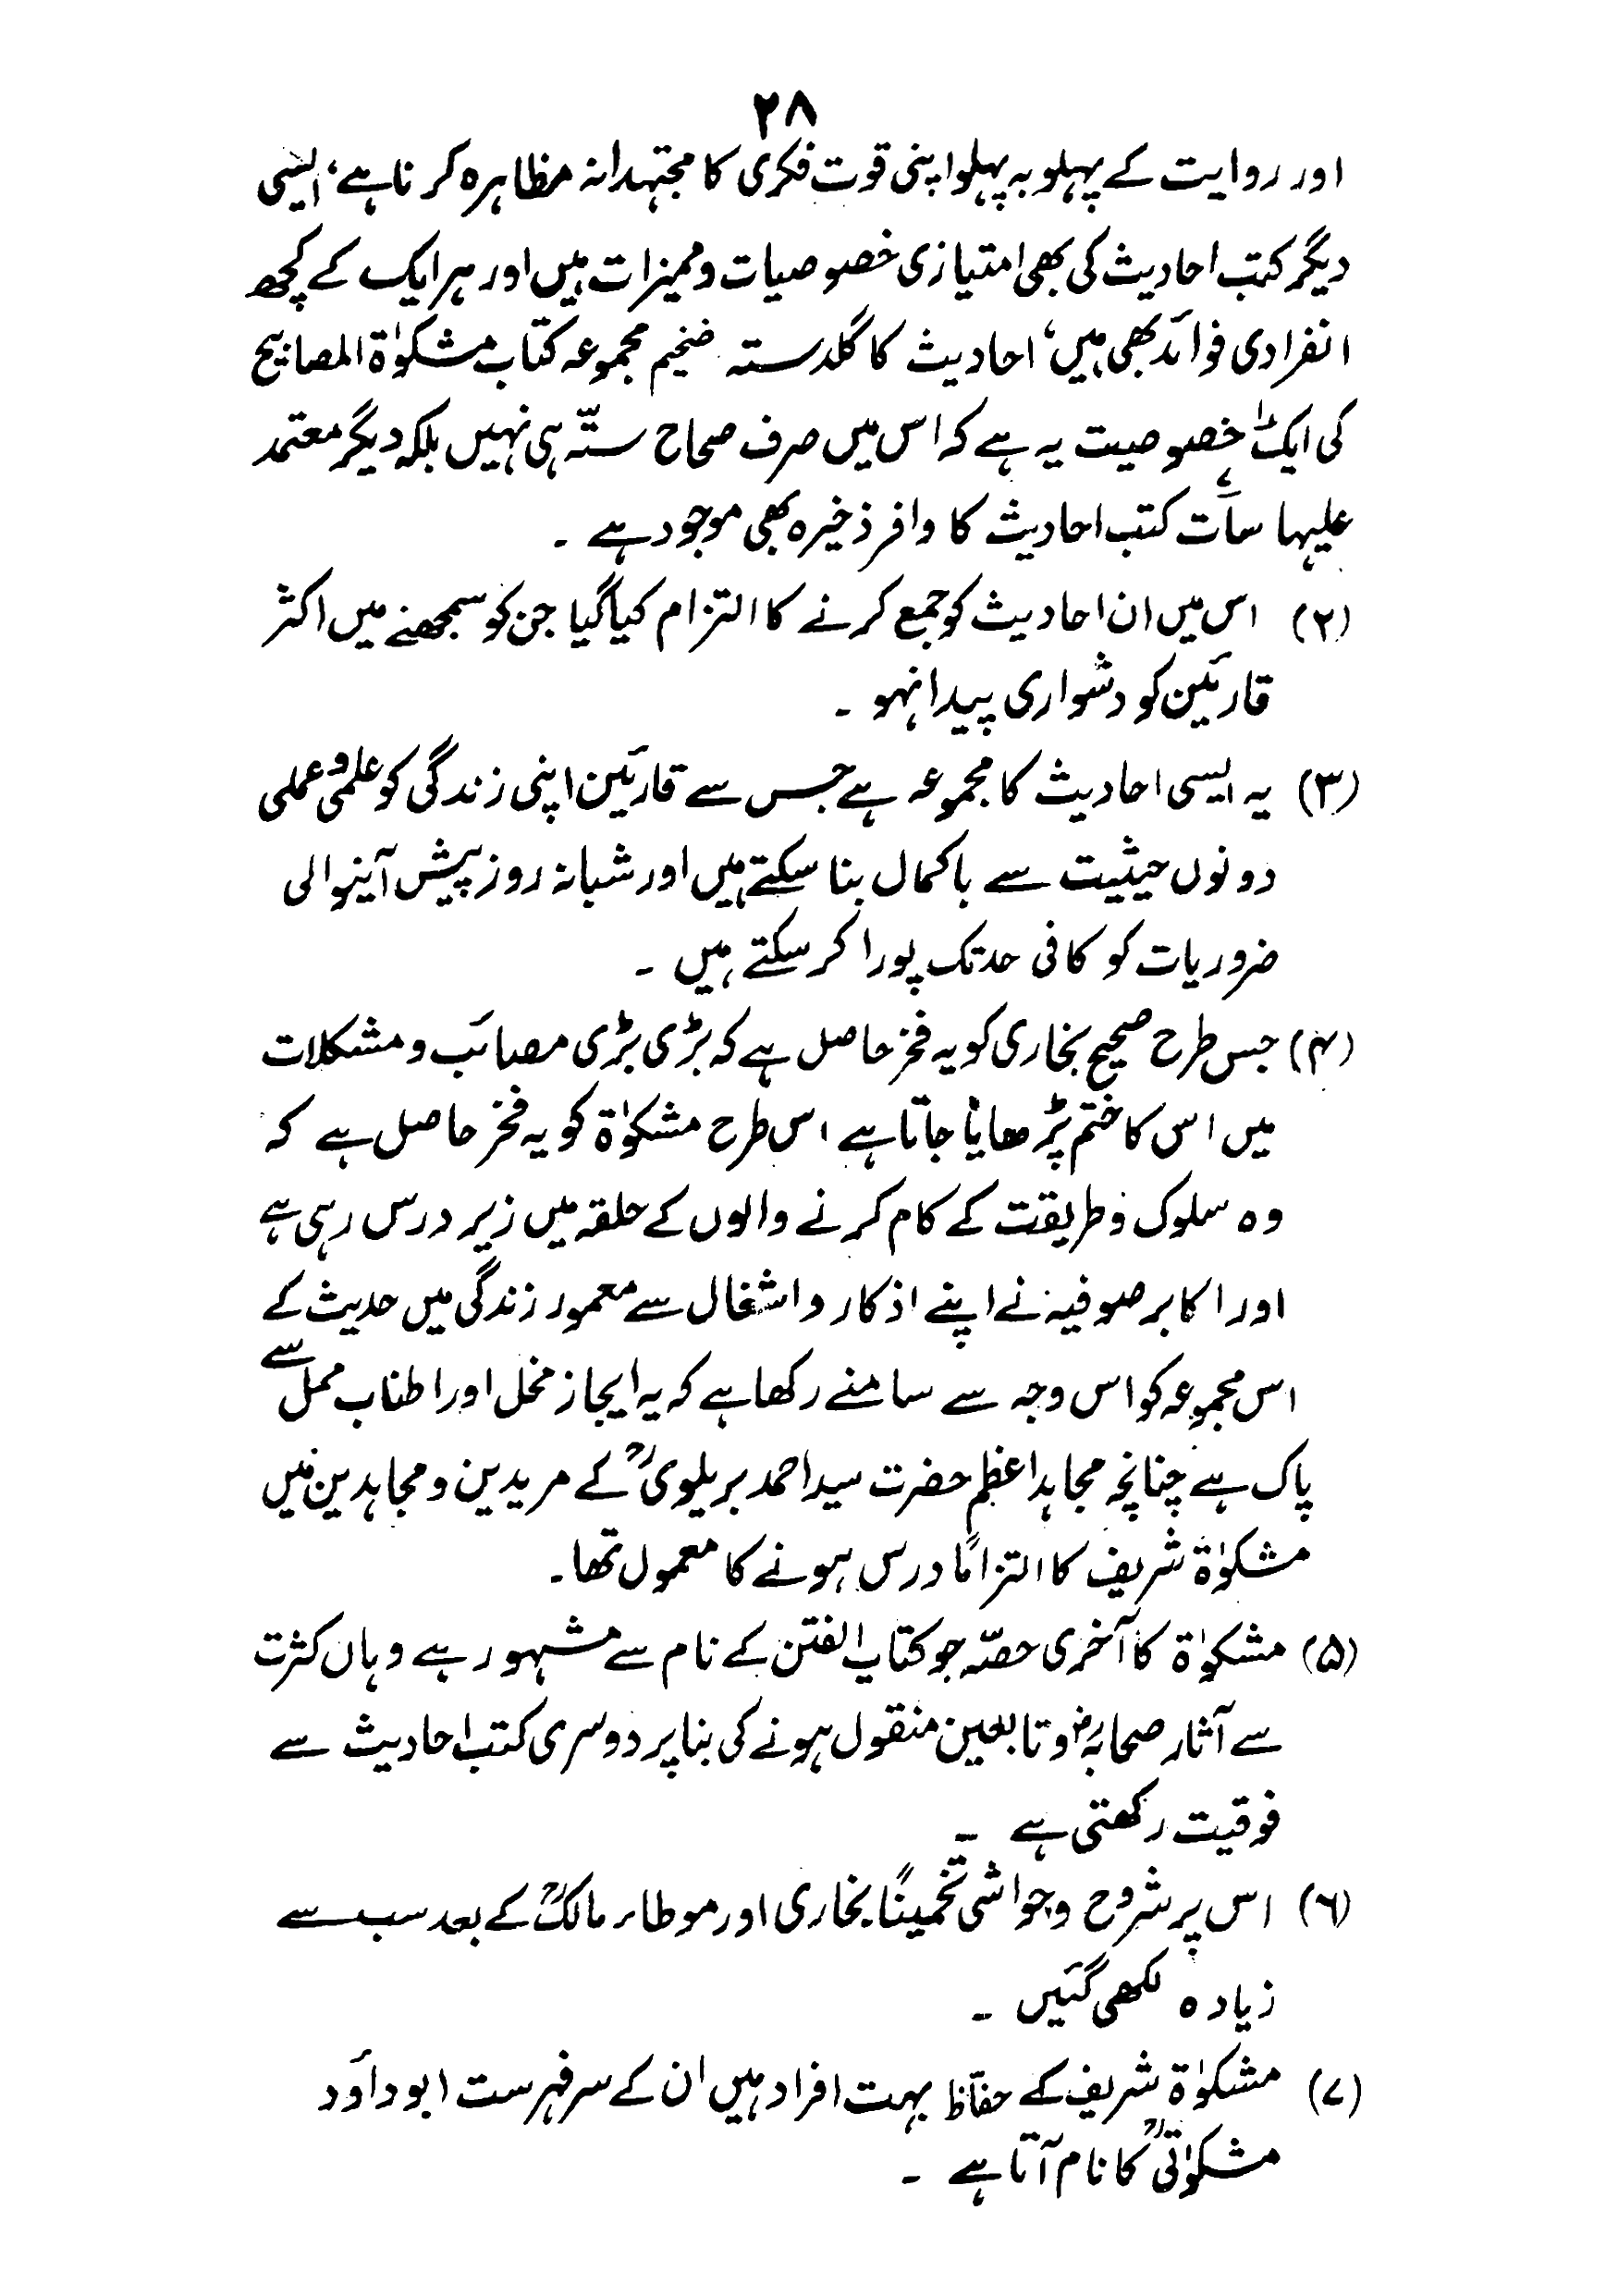 ۲۸
اور روایت کے پہلو بہ پہلو اپنی قوت فکری کا مجتہدانہ مظاہرہ کرنا ہے، ایسی
دیگر کتب احادیث کی بھی امتیازی خصوصیات و ممیزات ہیں اور ہر ایک کے کچھ
انفرادی فوائد بھی ہیں، احادیث کا گلدستہ ضخیم مجموعہ کتاب مشکوٰۃ المصابیح
کی ایک خصوصیت یہ ہے کہ اس میں صرف صحاح ستّہ ہی نہیں بلکہ دیگر معتمد
علیہا سات کتب احادیث کا وافر ذخیرہ بھی موجود ہے ۔
(۲) اس میں ان احادیث کو جمع کرنے کا التزام کیا گیا جن کو سمجھنے میں اکثر
قارئین کو دشواری پیدا نہو ۔
(۳) یہ ایسی احادیث کا مجموعہ ہے جس سے قارئین اپنی زندگی کو علمی و عملی
دونوں حیثیت سے باکمال بنا سکتے ہیں اور شبانہ روز پیش آنیوالی
ضروریات کو کافی حد تک پورا کر سکتے ہیں ۔
(۴) جس طرح صحیح بخاری کو یہ فخر حاصل ہے کہ بڑی بڑی مصائب و مشکلات
میں اس کا ختم پڑھایا جاتا ہے اس طرح مشکوٰۃ کو یہ فخر حاصل ہے کہ
وہ سلوک و طریقت کے کام کرنے والوں کے حلقہ میں زیر درس رہی ہے
اور اکابر صوفیہ نے اپنے اذکار و اشغال سے معمور زندگی میں حدیث کے
اس مجموعہ کو اس وجہ سے سامنے رکھا ہے کہ یہ ایجاز مخل اور اطناب ممل سے
پاک ہے چنانچہ مجاہد اعظم حضرت سید احمد بریلویؒ کے مریدین و مجاہدین میں
مشکوٰۃ شریف کا التزامًا درس ہونے کا معمول تھا۔
(۵) مشکوٰۃ کا آخری حصّہ جو کتاب الفتن کے نام سے مشہور ہے وہاں کثرت
سے آثار صحابہؓ و تابعین منقول ہونے کی بنا پر دوسری کتب احادیث سے
فوقیت رکھتی ہے ۔
(۶) اس پر شروح و حواشی تخمینًا بخاری اور موطاء مالکؒ کے بعد سب سے
زیادہ لکھی گئیں ۔
(۷) مشکوٰۃ شریف کے حفّاظ بہت افراد ہیں ان کے سرفہرست ابوداؤد
مشکوٰتیؒ کا نام آتا ہے ۔